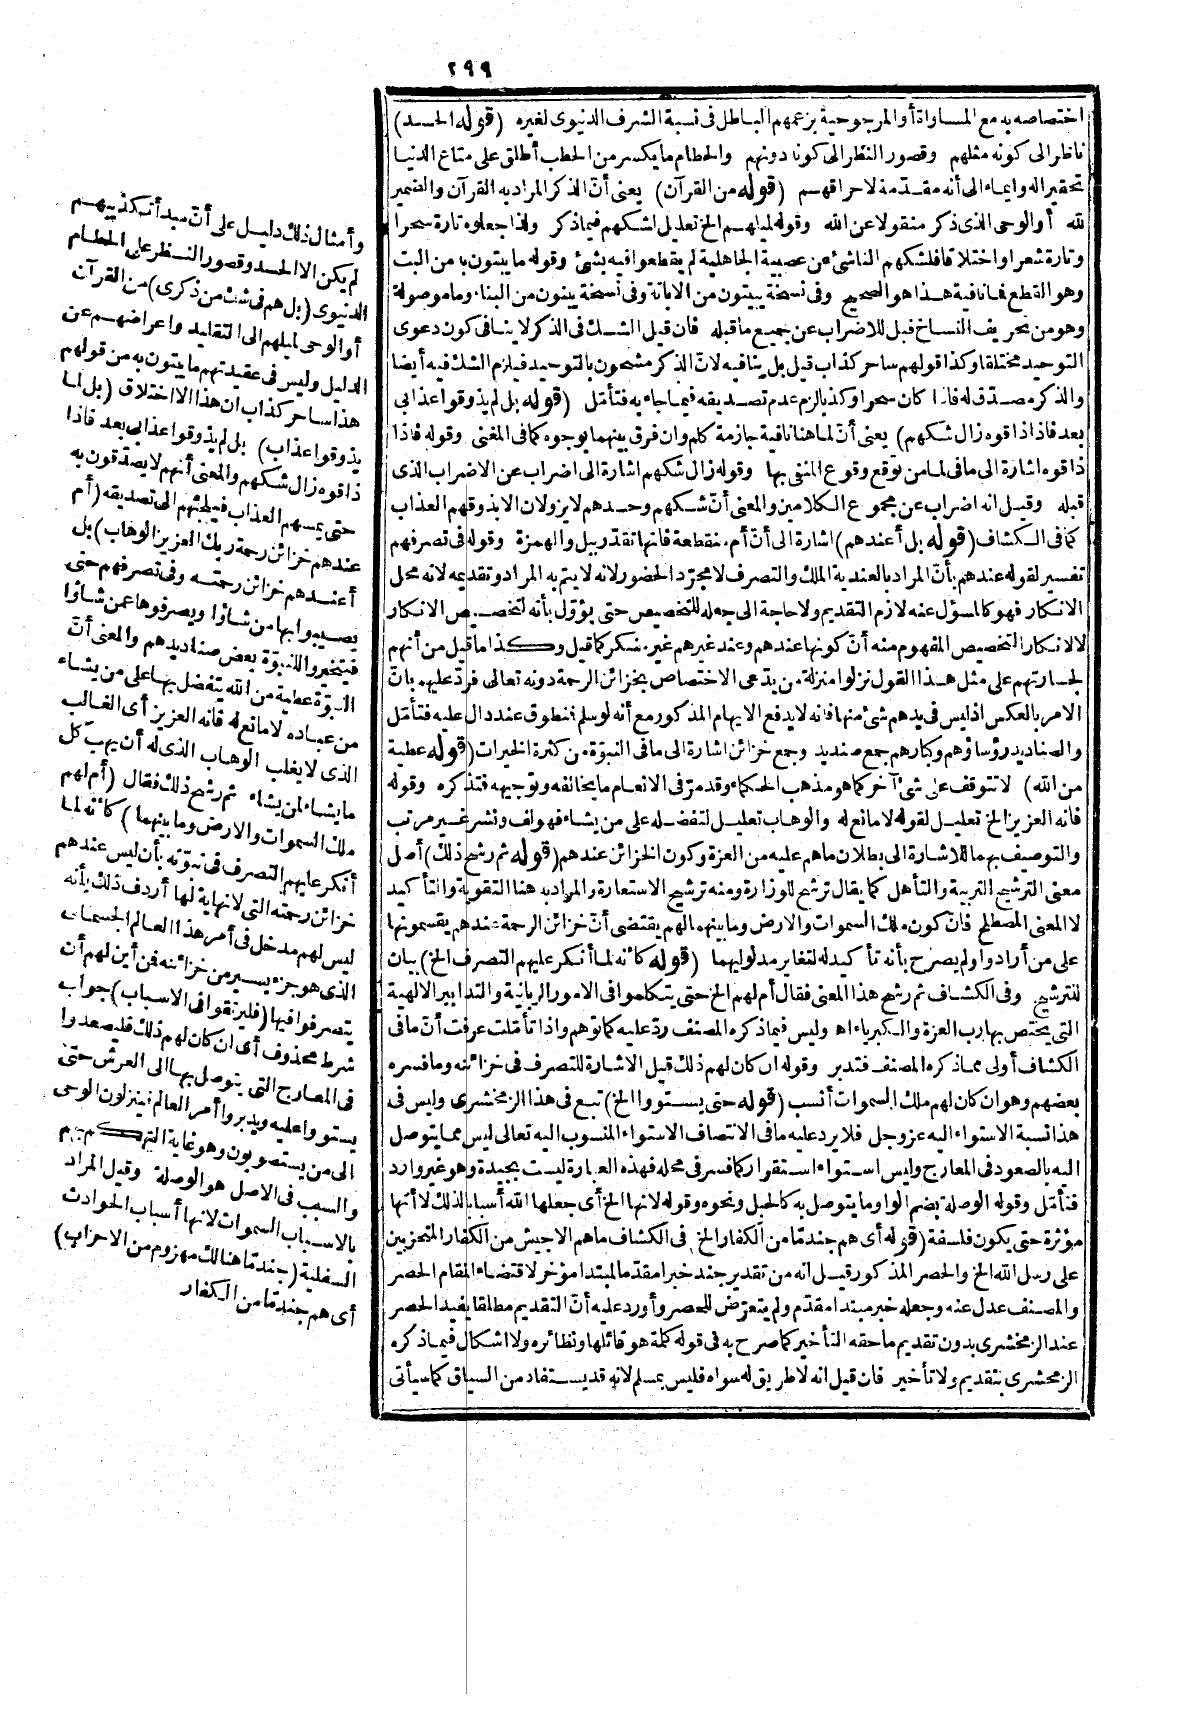 ٢٩٩
اختصاصه به مع المساواة أو المرجوحية بزعمهم الباطل فى نسبة الشرف الدنيوى لغيره (قوله الحسد)
ناظر الى كونه مثلهم وقصور النظر الى كونه دونهم والحطام ما يكسر من الحطب أطلق على متاع الدنيا
تحقيرا له وايماء الى أنه مقدّمة لاحراقهم (قوله من القرآن) يعنى أنّ الذكر المراد به القرآن والضمير
لله أو الوحى الذى ذكر منقولا عن الله وقوله لميلهم الخ تعليل لشكهم فيما ذكر ولذا جعلوه تارة سحرا
وتارة شعرا واختلاقا فلشكهم الناشئ عن عصبية الجاهلية لم يقطعوا فيه بشئ وقوله ما يبتون با من البت
وهو القطع فما نافية هذا هو الصحيح وفى نسخة يبيتون من الابانة وفى نسخة يبنون من البناء وما موصولة
وهو من تحريف النساخ قبل للاضراب عن جميع ما قبله فان قيل الشك فى الذكر لا ينافى كون دعوى
التوحيد مختلقا وكذا قولهم ساحر كذاب قيل بل ينافيه لانّ الذكر مشحون بالتوحيد فيلزم الشك فيه أيضا
والذكر مصدّق له فاذا كان سحرا وكذبا لزم عدم تصديقه فيما جاء به فتأمّل (قوله بل لم يذوقوا عذابى
بعد فاذا ذاقوه زال شكهم) يعنى أنّ لما هنا نافية جازمة كلم وان فرق بينهما بوجوه كما فى المغنى وقوله فاذا
ذاقوه اشارة الى ما فى لما من توقع وقوع المنفى بها وقوله زال شكهم اشارة الى اضراب عن الاضراب الذى
قبله وقيل انه اضراب عن مجموع الكلامين والمعنى أنّ شكهم وحسدهم لا يزولان الا بذوقهم العذاب
كما فى الكشاف (قوله بل أعندهم) اشارة الى أنّ أم منقطعة فانها تقدّر ببل والهمزة وقوله فى تصرفهم
تفسير لقوله عندهم بأنّ المراد بالعندية الملك والتصرف لا مجرّد الحضور لانه لا يتم به المراد وتقديمه لانه محل
الانكار فهو كالمسؤل عنه لازم التقديم ولا حاجة الى جعله للتخصيص حتى يؤوّل بأنه لتخصيص الانكار
لا لانكار التخصيص المفهوم منه أنّ كونها عندهم وعند غيرهم غير منكر كما قيل وكذا ما قيل من أنهم
لجسارتهم على مثل هذا القول نزلوا منزلة من يدّعى الاختصاص بخزائن الرحمة دونه تعالى فردّ عليهم بانّ
الامر بالعكس اذ ليس فى يدهم شئ منها فانه لا يدفع الايهام المذكور مع أنه لو سلم فمنطوق عند دال عليه فتأمّل
والصناديد رؤساؤهم وكبارهم جمع صنديد وجمع خزائن اشارة الى ما فى النبوّة من كثرة الخيرات (قوله عطية
من الله) لا تتوقف على شئ آخر كما هو مذهب الحكماء وقد مرّ فى الانعام ما يخالفه وتوجيهه فتذكره وقوله
فانه العزيز الخ تعليل لقوله لا مانع له والوهاب تعليل لتفضله على من يشاء فهو لف ونشر غير مرتب
والتوصيف بهما للاشارة الى بطلان ما هم عليه من العزة وكون الخزائن عندهم (قوله ثم رشح ذلك) أصل
معنى الترشيح التربية والتأهل كما يقال ترشح للوزارة ومنه ترشيح الاستعارة والمراد به هنا التقوية والتأكيد
لا المعنى المصطلح فانّ كون ملك السموات والارض وما بينهما لهم يقتضى أنّ خزائن الرحمة عندهم يقسمونها
على من أرادوا ولم يصرح بأنه تأكيد له لتغاير مدلوليهما (قوله كانه لما أنكر عليهم التصرف الخ) بيان
للترشيح وفى الكشاف ثم رشح هذا المعنى فقال أم لهم الخ حتى يتكلموا فى الامور الربانية والتدابير الالهية
التى يختص بها رب العزة والكبرياء اه وليس فيما ذكره المصنف ردّ عليه كما توهم واذا تأمّلت عرفت أنّ ما فى
الكشاف أولى مما ذكره المصنف فتدبر وقوله ان كان لهم ذلك قيل الاشارة للتصرف فى خزائنه وما فسره
بعضهم وهو ان كان لهم ملك السموات أنسب (قوله حتى يستووا الخ) تبع فى هذا الزمخشرى وليس فى
هذا نسبة الاستواء اليه عز وجل فلا يرد عليه ما فى الانتصاف الاستواء المنسوب اليه تعالى ليس مما يتوصل
اليه بالصعود فى المعارج وليس استواء استقرار كما فسر فى محله فهذه العبارة ليست بجيدة وهو غير وارد
فتأمّل وقوله الوصلة بضم الواو ما يتوصل به كالحبل ونحوه وقوله لانها الخ أى جعلها الله أسبابا لذلك لا أنها
مؤثرة حتى يكون فلسفة (قوله أى هم جندمّا من الكفار الخ) فى الكشاف ما هم الا جيش من الكفار المتحزبين
على رسل الله الخ والحصر المذكور قيل انه من تقدير جند خبرا مقدّما لمبتدا مؤخر لاقتضاء المقام الحصر
والمصنف عدل عنه وجعله خبر مبتدا مقدّم ولم يتعرّض للحصر وأورد عليه أنّ التقديم مطلقا يفيد الحصر
عند الزمخشرى بدون تقديم ما حقه التأخير كما صرح به فى قوله كلمة هو قائلها ونظائره ولا اشكال فيما ذكره
الزمخشرى بتقديم ولا تأخير فان قيل انه لا طريق له سواه فليس بمسلم لانه قد يستفاد من السياق كما سيأتى
وأمثال ذلك دليل على أنّ مبدأ تكذيبهم
لم يكن الا الحسد وقصور النظر على الحطام
الدنيوى (بل هم فى شك من ذكرى) من القرآن
أو الوحى لميلهم الى التقليد واعراضهم عن
الدليل وليس فى عقيدتهم ما يبتون به من قولهم
هذا ساحر كذاب ان هذا الا اختلاق (بل لما
يذوقوا عذاب) بل لم يذوقوا عذابى بعد فاذا
ذاقوه زال شكهم والمعنى أنهم لا يصدّقون به
حتى يمسهم العذاب فيلجئهم الى تصديقه (أم
عندهم خزائن رحمة ربك العزيز الوهاب) بل
أعندهم خزائن رحمته وفى تصرفهم حتى
يصيبوا بها من شاؤا ويصرفوها عمن شاؤا
فيتخيروا للنبوّة بعض صناديدهم والمعنى أنّ
النبوّة عطية من الله يتفضل بها على من يشاء
من عباده لا مانع له فانه العزيز أى الغالب
الذى لا يغلب الوهاب الذى له أن يهب كل
ما يشاء لمن يشاء ثم رشح ذلك فقال (أم لهم
ملك السموات والارض وما بينهما) كانه لما
أنكر عليهم التصرف فى نبوّته بأن ليس عندهم
خزائن رحمته التى لا نهاية لها أردف ذلك بأنه
ليس لهم مدخل فى أمر هذا العالم الجسمانى
الذى هو جزء يسير من خزائنه فمن أين لهم أن
يتصرفوا فيها (فليرتقوا فى الاسباب) جواب
شرط محذوف أى ان كان لهم ذلك فليصعدوا
فى المعارج التى يتوصل بها الى العرش حتى
يستووا عليه ويدبروا أمر العالم فينزلون الوحى
الى من يستصوبون وهو غاية التهكم بهم
والسبب فى الاصل هو الوصلة وقيل المراد
بالاسباب السموات لانها أسباب الحوادث
السفلية (جند ما هنالك مهزوم من الاحزاب)
أى هم جندمّا من الكفار